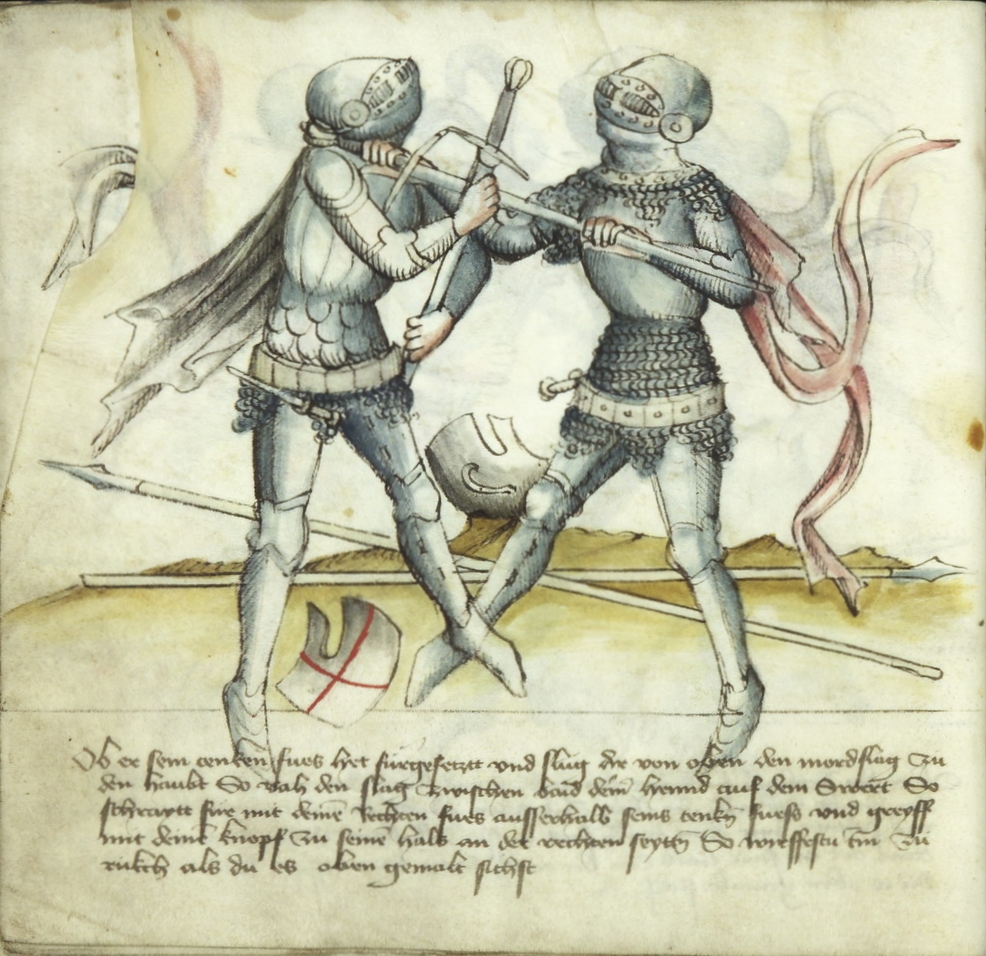 Ob er sein tencken fues het fürgesetzt vnd slug dir von oben den mordslag zu
den haubt So vach den slag zwischen baid deine hennd auf dem Swert So
schreytt für mit deinē Rechten fues ausserhalb seins tenkñ fuess vnd greyff
mit deinē knopf zu seinē hals an der rechten seytñ So wirffestu im zu
rukch als du es oben gemalt sichst